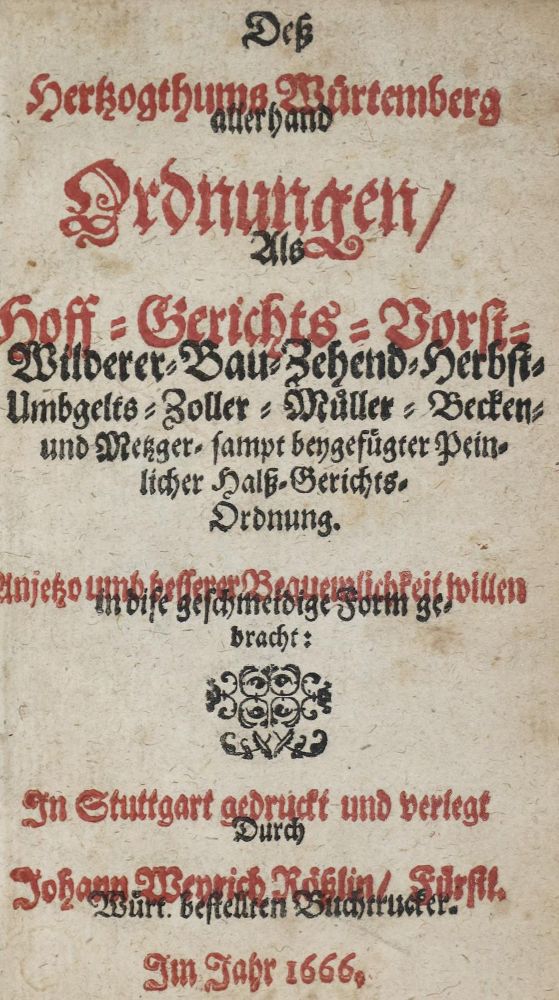 Deß
Hertzogthums Würtemberg
allerhand
Ordnungen/
Als
Hoff-Gerichts-Vorst-
Wilderer-Bau-Zehend-Herbst-
Umbgelts-Zoller-Müller-Becken-
und Metzger- sampt beygefügter Pein-
licher Halß-Gerichts-
Ordnung.
Anjetzo umb besserer Bequemlichkeit willen
in dise geschmeidige Form ge-
bracht:
In Stuttgart gedruckt und verlegt
Durch
Johann Weyrich Rößlin/ Fürstl.
Würt. bestellten Buchtrucker.
Im Jahr 1666.